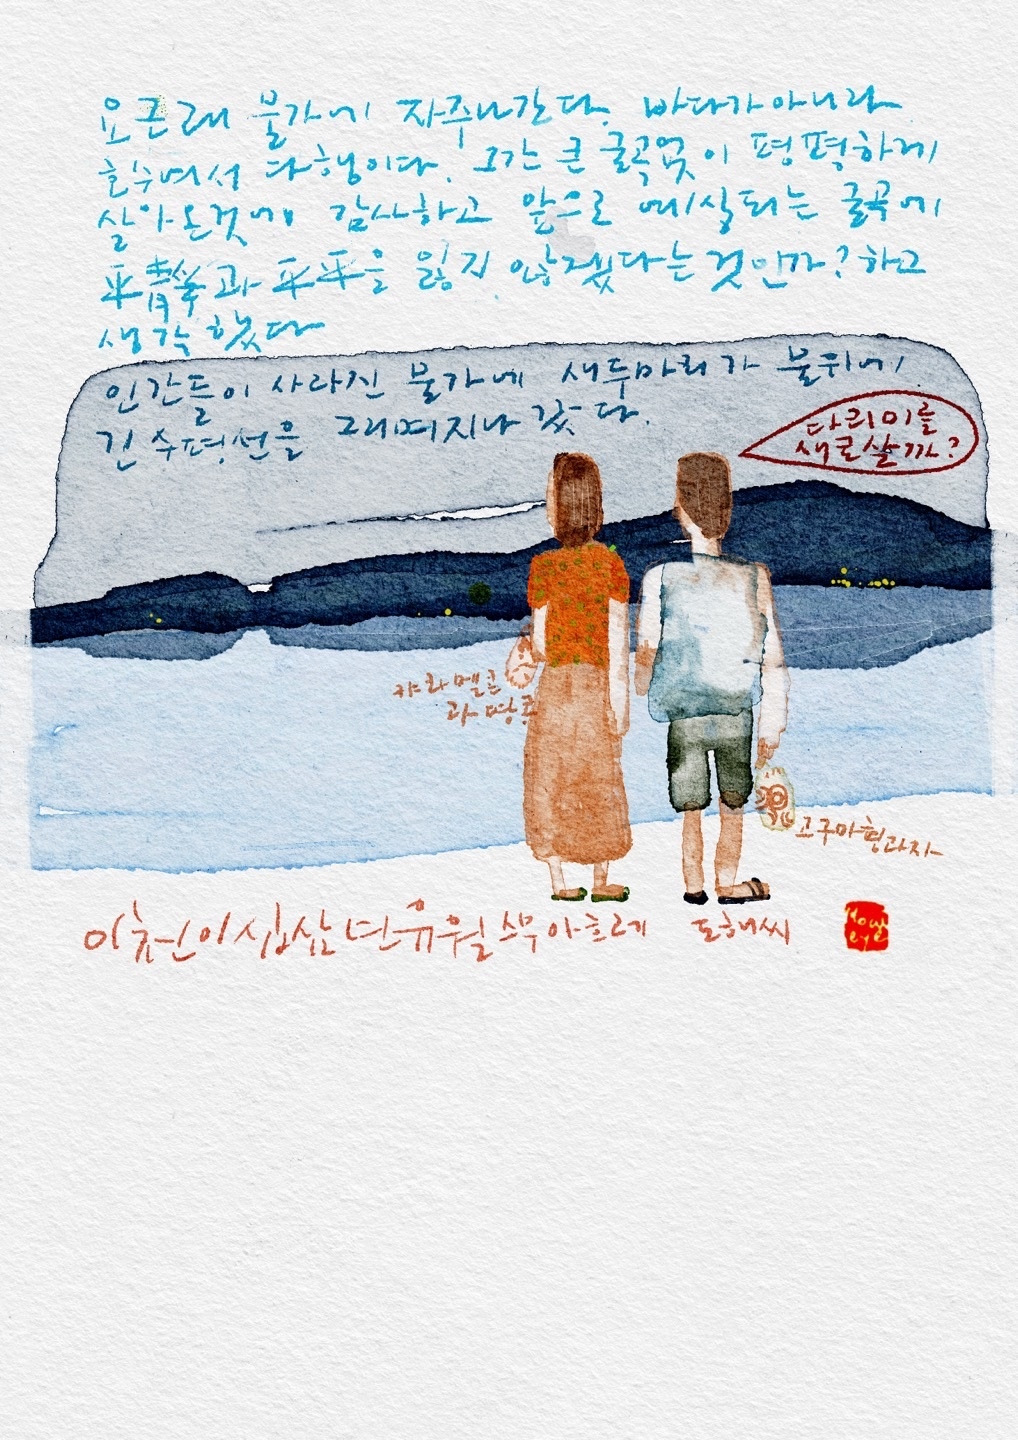 요근래 물가에 자주나간다. 바다가아니라
호수여서 다행이다. 그간 큰 굴곡없이 평평하게
살아온것에 감사하고 앞으로 예상되는 굴곡에
과 平平을 잃지 않겠다는것인가?하고
생각했다
인간들이 사라진 물가에 새두마리가 물위에
긴 수평선을 그리며지나갔다.
다리미를
새로살까?
캬라멜콘
과땅콩
고구마형과자
이천이십삼년유월스무아흐레 도해씨
Now
eye